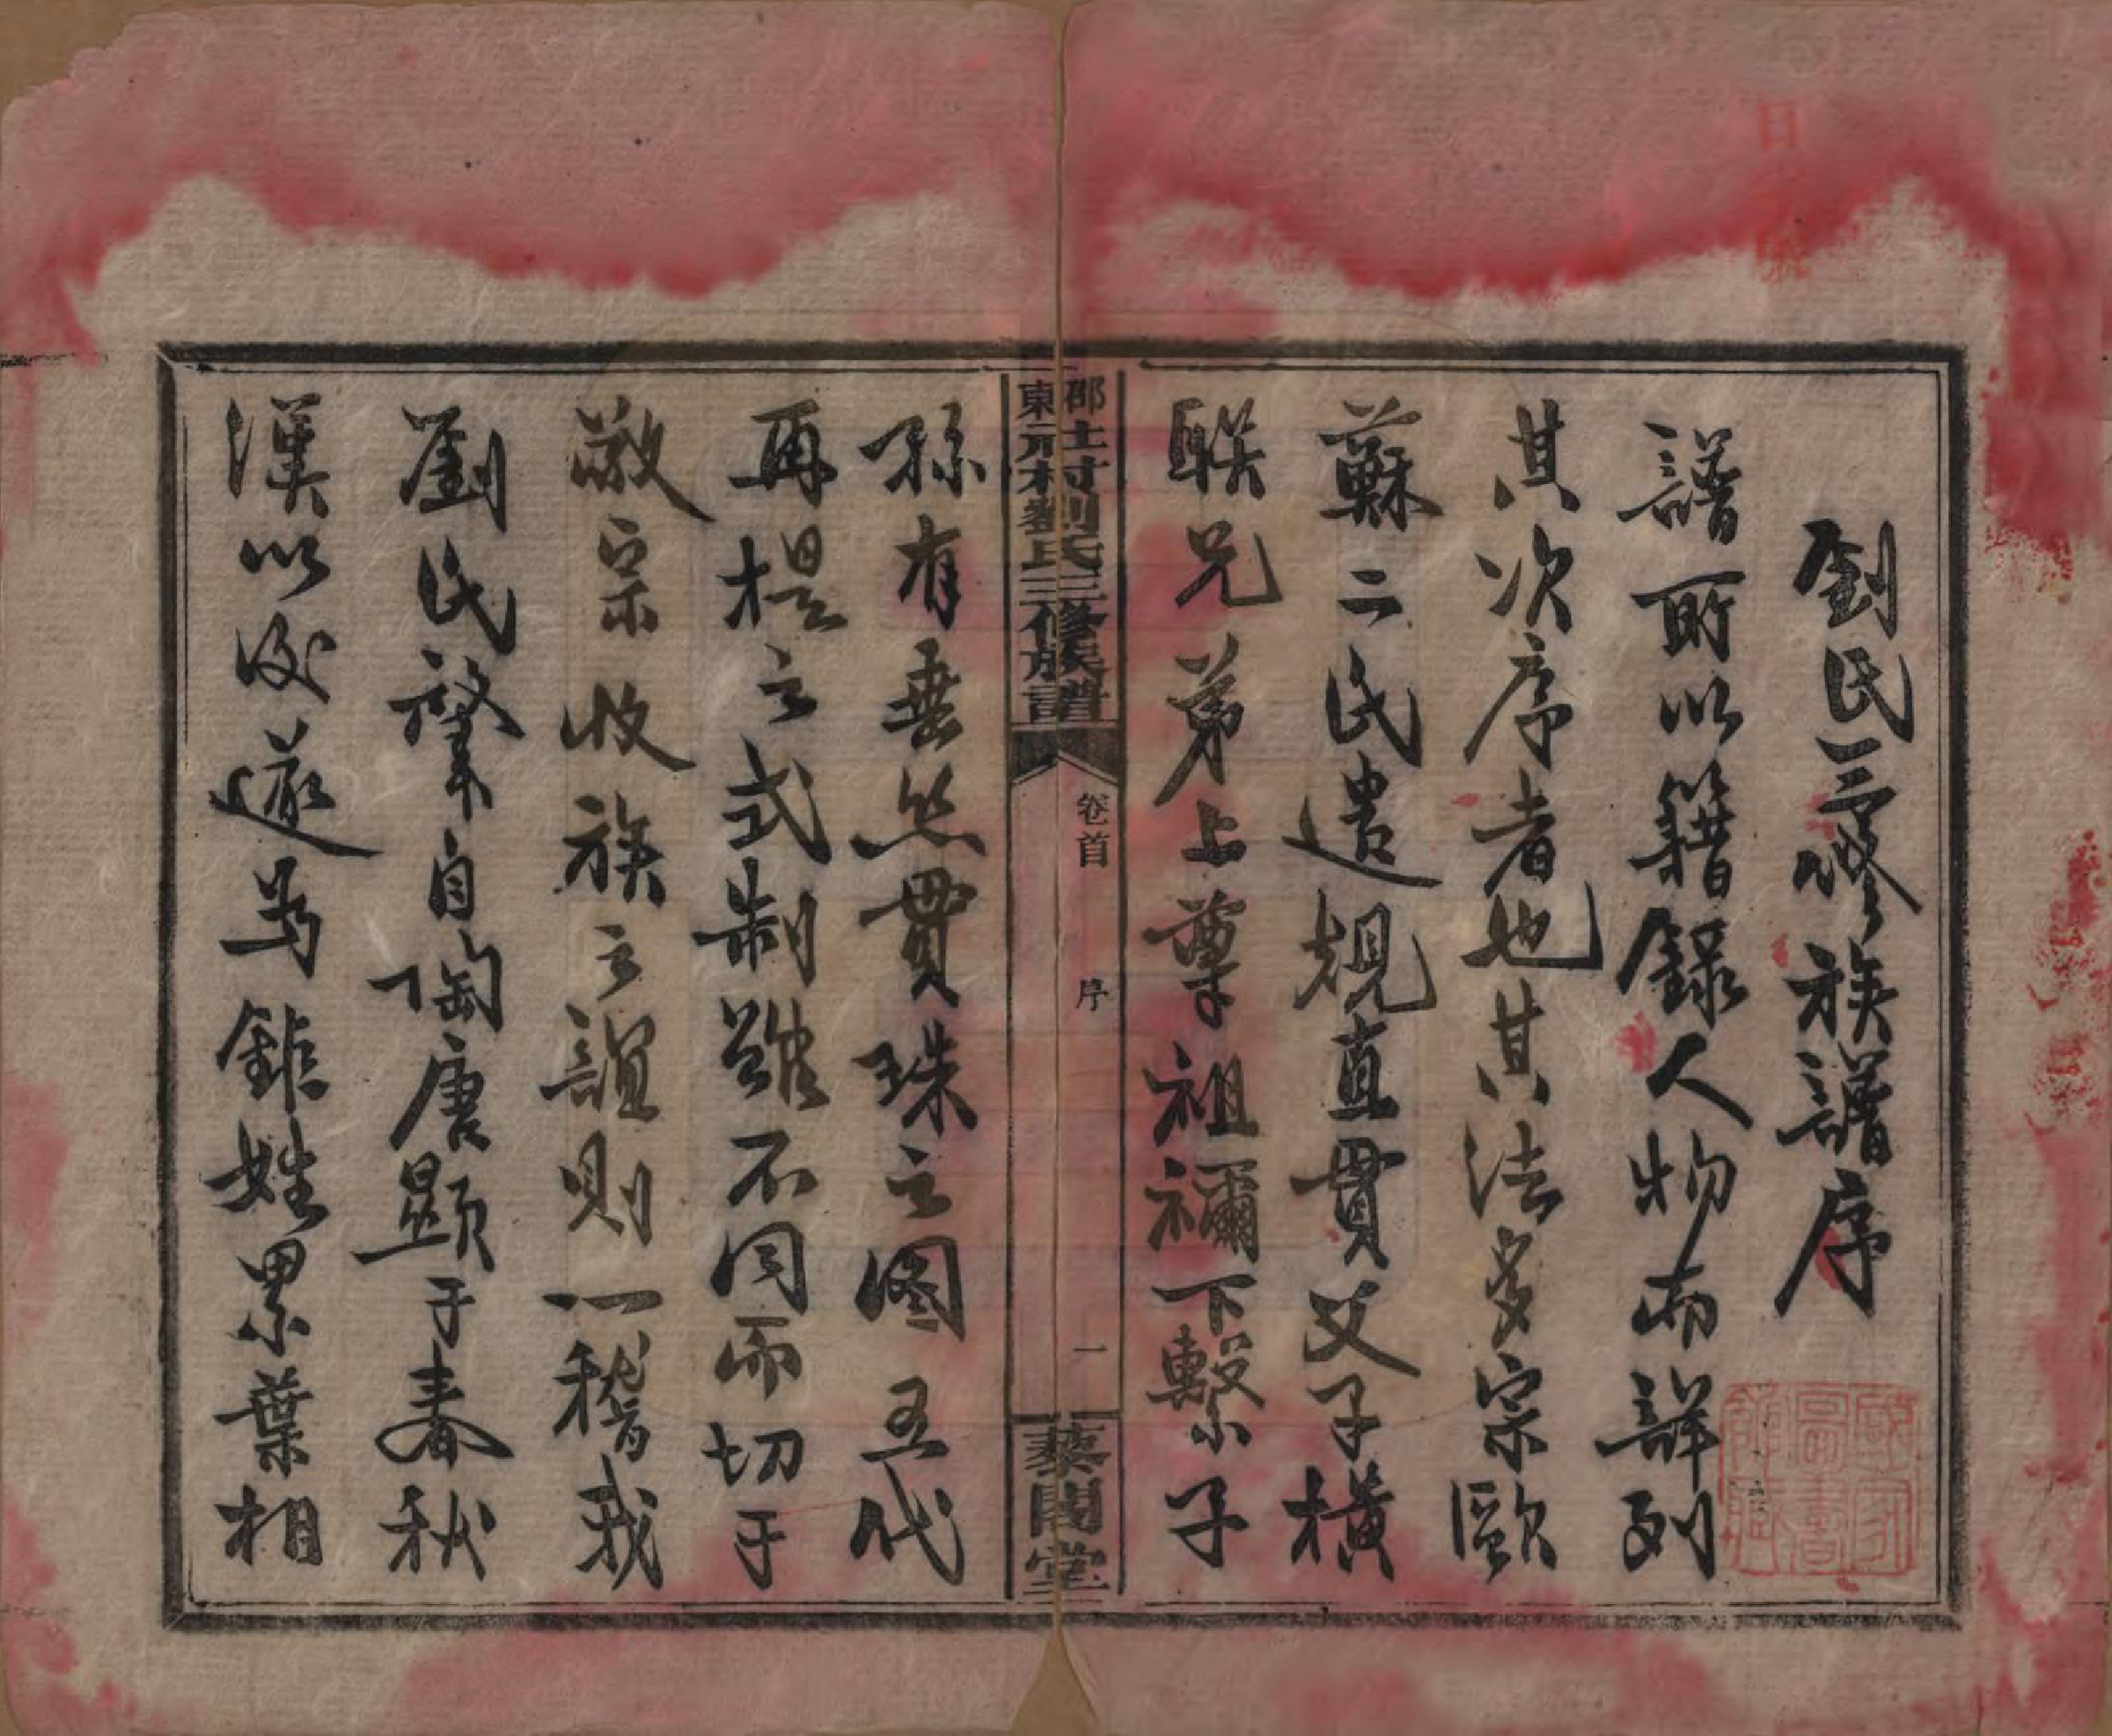 劉氏三修族譜序
譜所以籍録人物而詳列
其次序者也其法多宗歐
蘇二氏遺規直貫父子橫
聯兄弟上尊祖禰下繫子
邵東士元村劉氏三修族譜
卷首
序
一
藜閣堂
孫有垂絲貫珠之圖五代
再提之式制雖不同而切于
敬宗收族之誼則一稽我
劉氏肇自陶唐顯于春秋
漢以後遂為鉅姓累葉相
國家圖書館藏